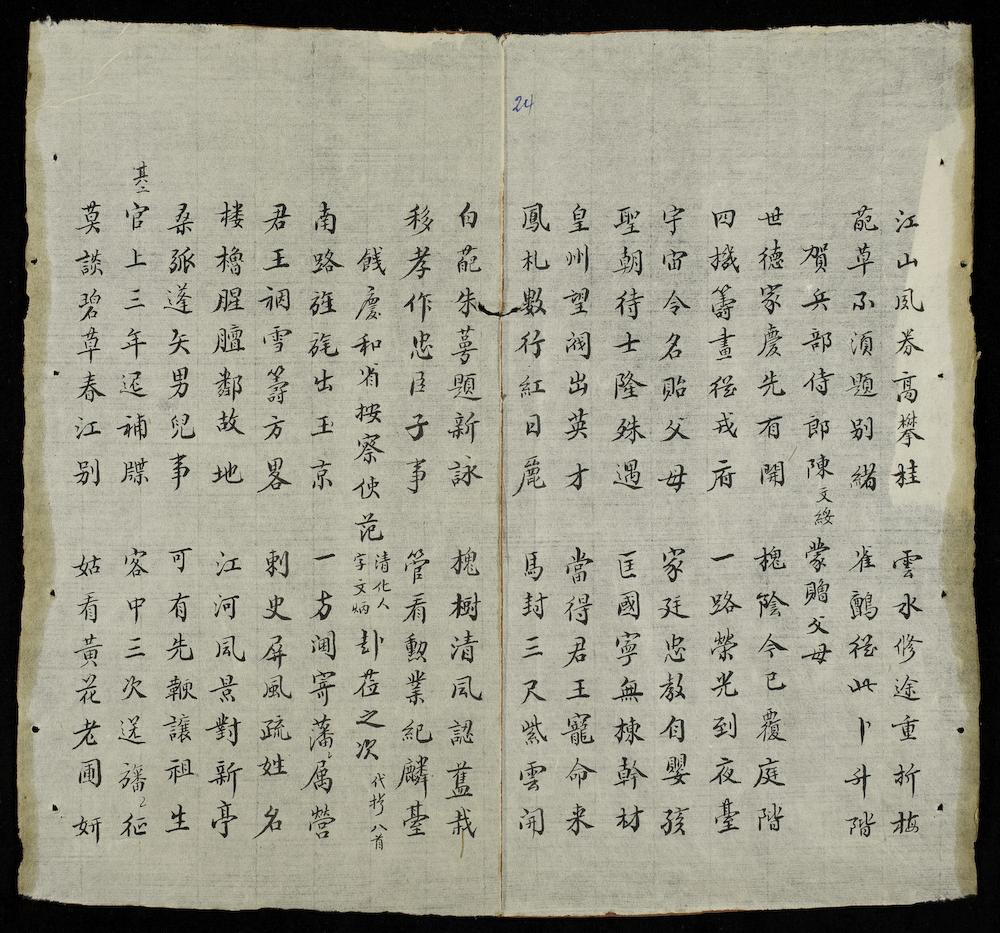 24
江山風券高攀桂 雲水修途重折梅
葩草不須題別緒 雀鸝從此卜升階
賀兵部侍郎陳文綏蒙贈父母
世德家慶先有開 槐陰今已覆庭階
四機籌畫從戎府 一路榮光到夜臺
宇宙令名貽父母 家廷忠教自嬰孩
聖朝待士隆殊遇 匡國寧無棟幹材
皇州望闕出英才 當得君王寵命来
鳳札數行紅日麗 馬封三尺紫雲開
白葩朱萼題新詠 槐樹清風認舊栽
移孝作忠臣子事 管看勳業紀麟臺
餞慶和省按察使范清化人字文炳赴莅之次代拚八首
南路旌旄出玉京 一方閫寄藩属營
君王裀雪籌方畧 刺史屏風疏姓名
楼櫓腥膻鄰故地 江河風景對新亭
桑弧蓬矢男兒事 可有先鞭讓祖生
其二 官上三年迟補牒 客中三次送旛征
莫談碧草春江别 姑看黃花老圃妍